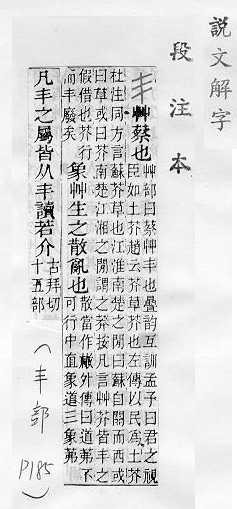 說文解字
段注本
丯
艸蔡也
艸部曰蔡艸丯也曡韵互訓孟子曰君之視
臣如土芥趙云芥草芥也左傳以民爲土芥
杜注同方言蘇芥草也江淮南楚之閒曰蘇自關而西或
曰草或曰芥南楚江湘之閒謂之莽按凡言艸芥皆丯之
假借也芥行
而丯廢矣
象艸生之散亂也
散當作㪔外傳曰道茀不
可行中直象道三象茀
凡丯之屬皆从丯讀若介
古拜切
十五部
(丯部 P185)